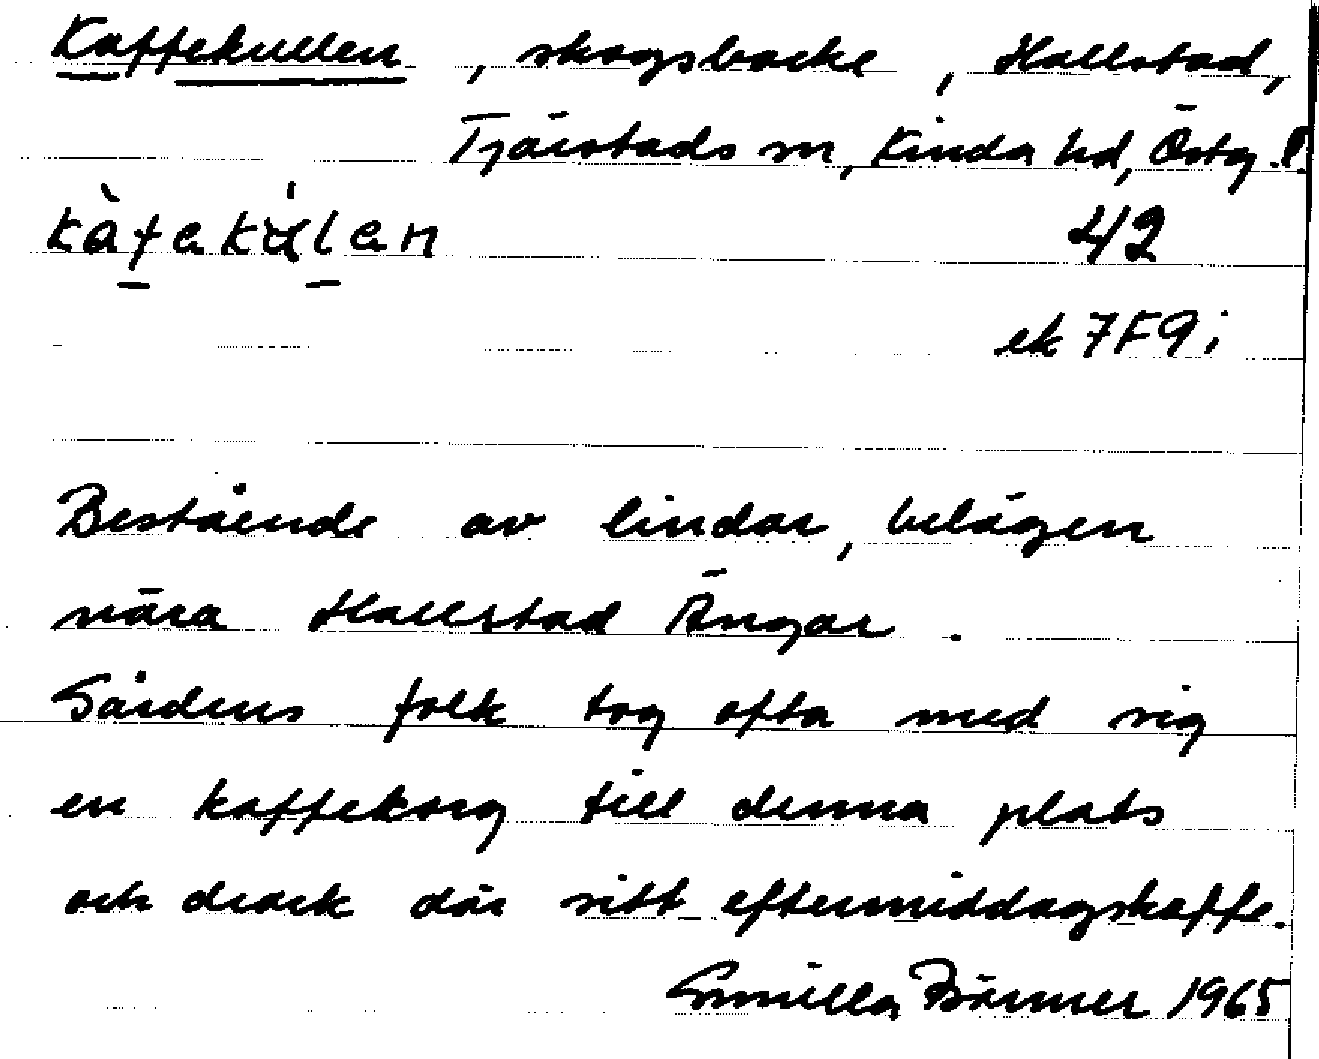 Kaffekullen, skogsbacke, Hallstad,
Tjärstads sn, Kinda hd, Östg.
kàfekú̵len
42
ek 7F9i
Bestående av lindar, belägen
nära Hallstad Ängar.
Gårdens folk tog ofta med sig
en kaffekorg till denna plats
och drack där sitt eftermiddagskaffe.
Gunilla 1965